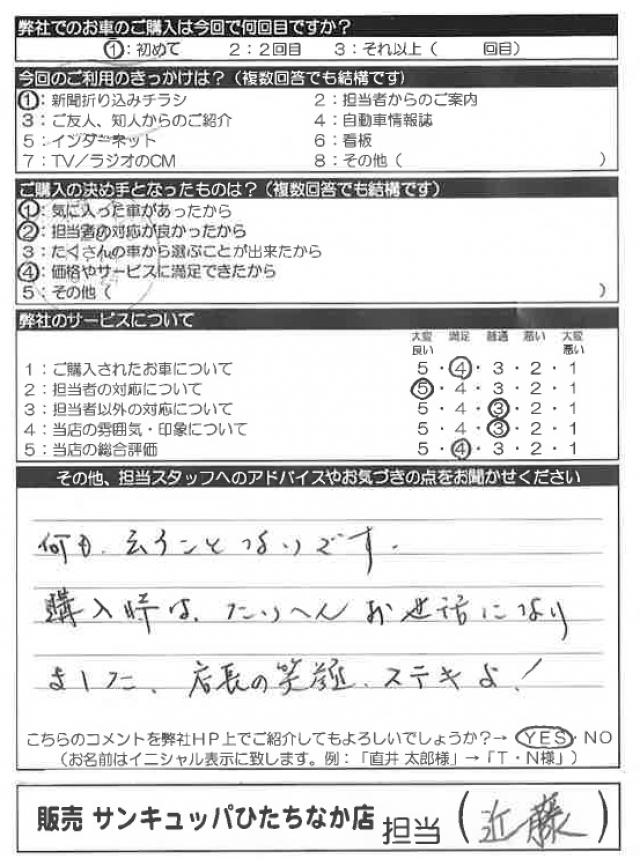 弊社でのお車のご購入は今回で何回目ですか？
①：初めて　2：2回目　3：それ以上（　　回目）
今回のご利用のきっかけは？（複数回答でも結構です）
①：新聞折り込みチラシ　2：担当者からのご案内
3：ご友人、知人からのご紹介　4：自動車情報誌
5：インターネット　6：看板
7：TV／ラジオのCM　8：その他（　　）
ご購入の決め手となったものは？（複数回答でも結構です）
①：気に入った車があったから
②：担当者の対応が良かったから
3：たくさんの車から選ぶことが出来たから
④：価格やサービスに満足できたから
5：その他（　　）
弊社のサービスについて
大変良い　満足　普通　悪い　大変悪い
1：ご購入されたお車について　5・④・3・2・1
2：担当者の対応について　⑤・4・3・2・1
3：担当者以外の対応について　5・4・③・2・1
4：当店の雰囲気・印象について　5・4・③・2・1
5：当店の総合評価　5・④・3・2・1
その他、担当スタッフへのアドバイスやお気づきの点をお聞かせください
何も、云うことないです。
購入時は、たいへんお世話になり
ました、店長の笑顔、ステキよ！
こちらのコメントを弊社HP上でご紹介してもよろしいでしょうか？→ YES・NO
（お名前はイニシャル表示に致します。例：「直井 太郎様」→「T・N様」）
販売 サンキュッパひたちなか店 担当（近藤）